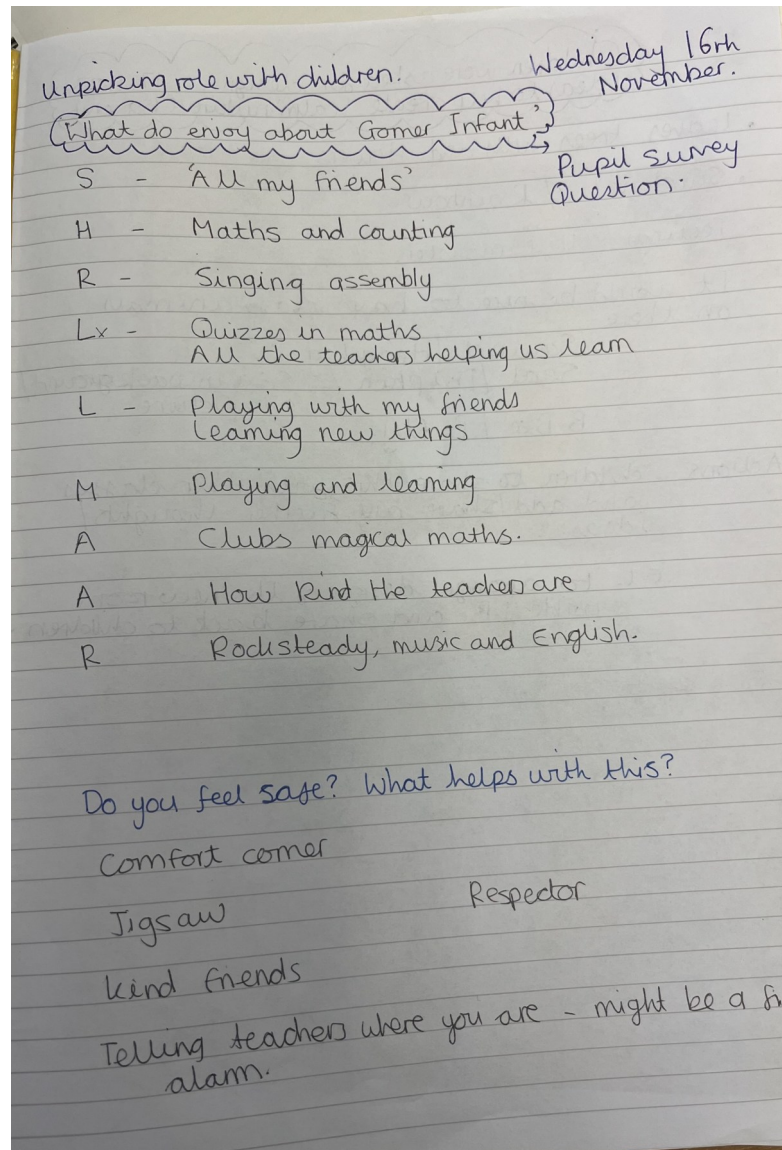 Unpicking role with children.
Wednesday 16th
November.
'What do enjoy about Gomer Infant'
Pupil survey
Question.
S - 'All my friends'
H - Maths and counting
R - Singing assembly
Lx - Quizzes in maths
All the teachers helping us learn
L - Playing with my friends
Learning new things
M Playing and learning
A Clubs magical maths.
A How kind the teachers are
R Rocksteady, music and English.
Do you feel safe? What helps with this?
Comfort corner
Respector
Jigsaw
kind friends
Telling teachers where you are - might be a
alarm.